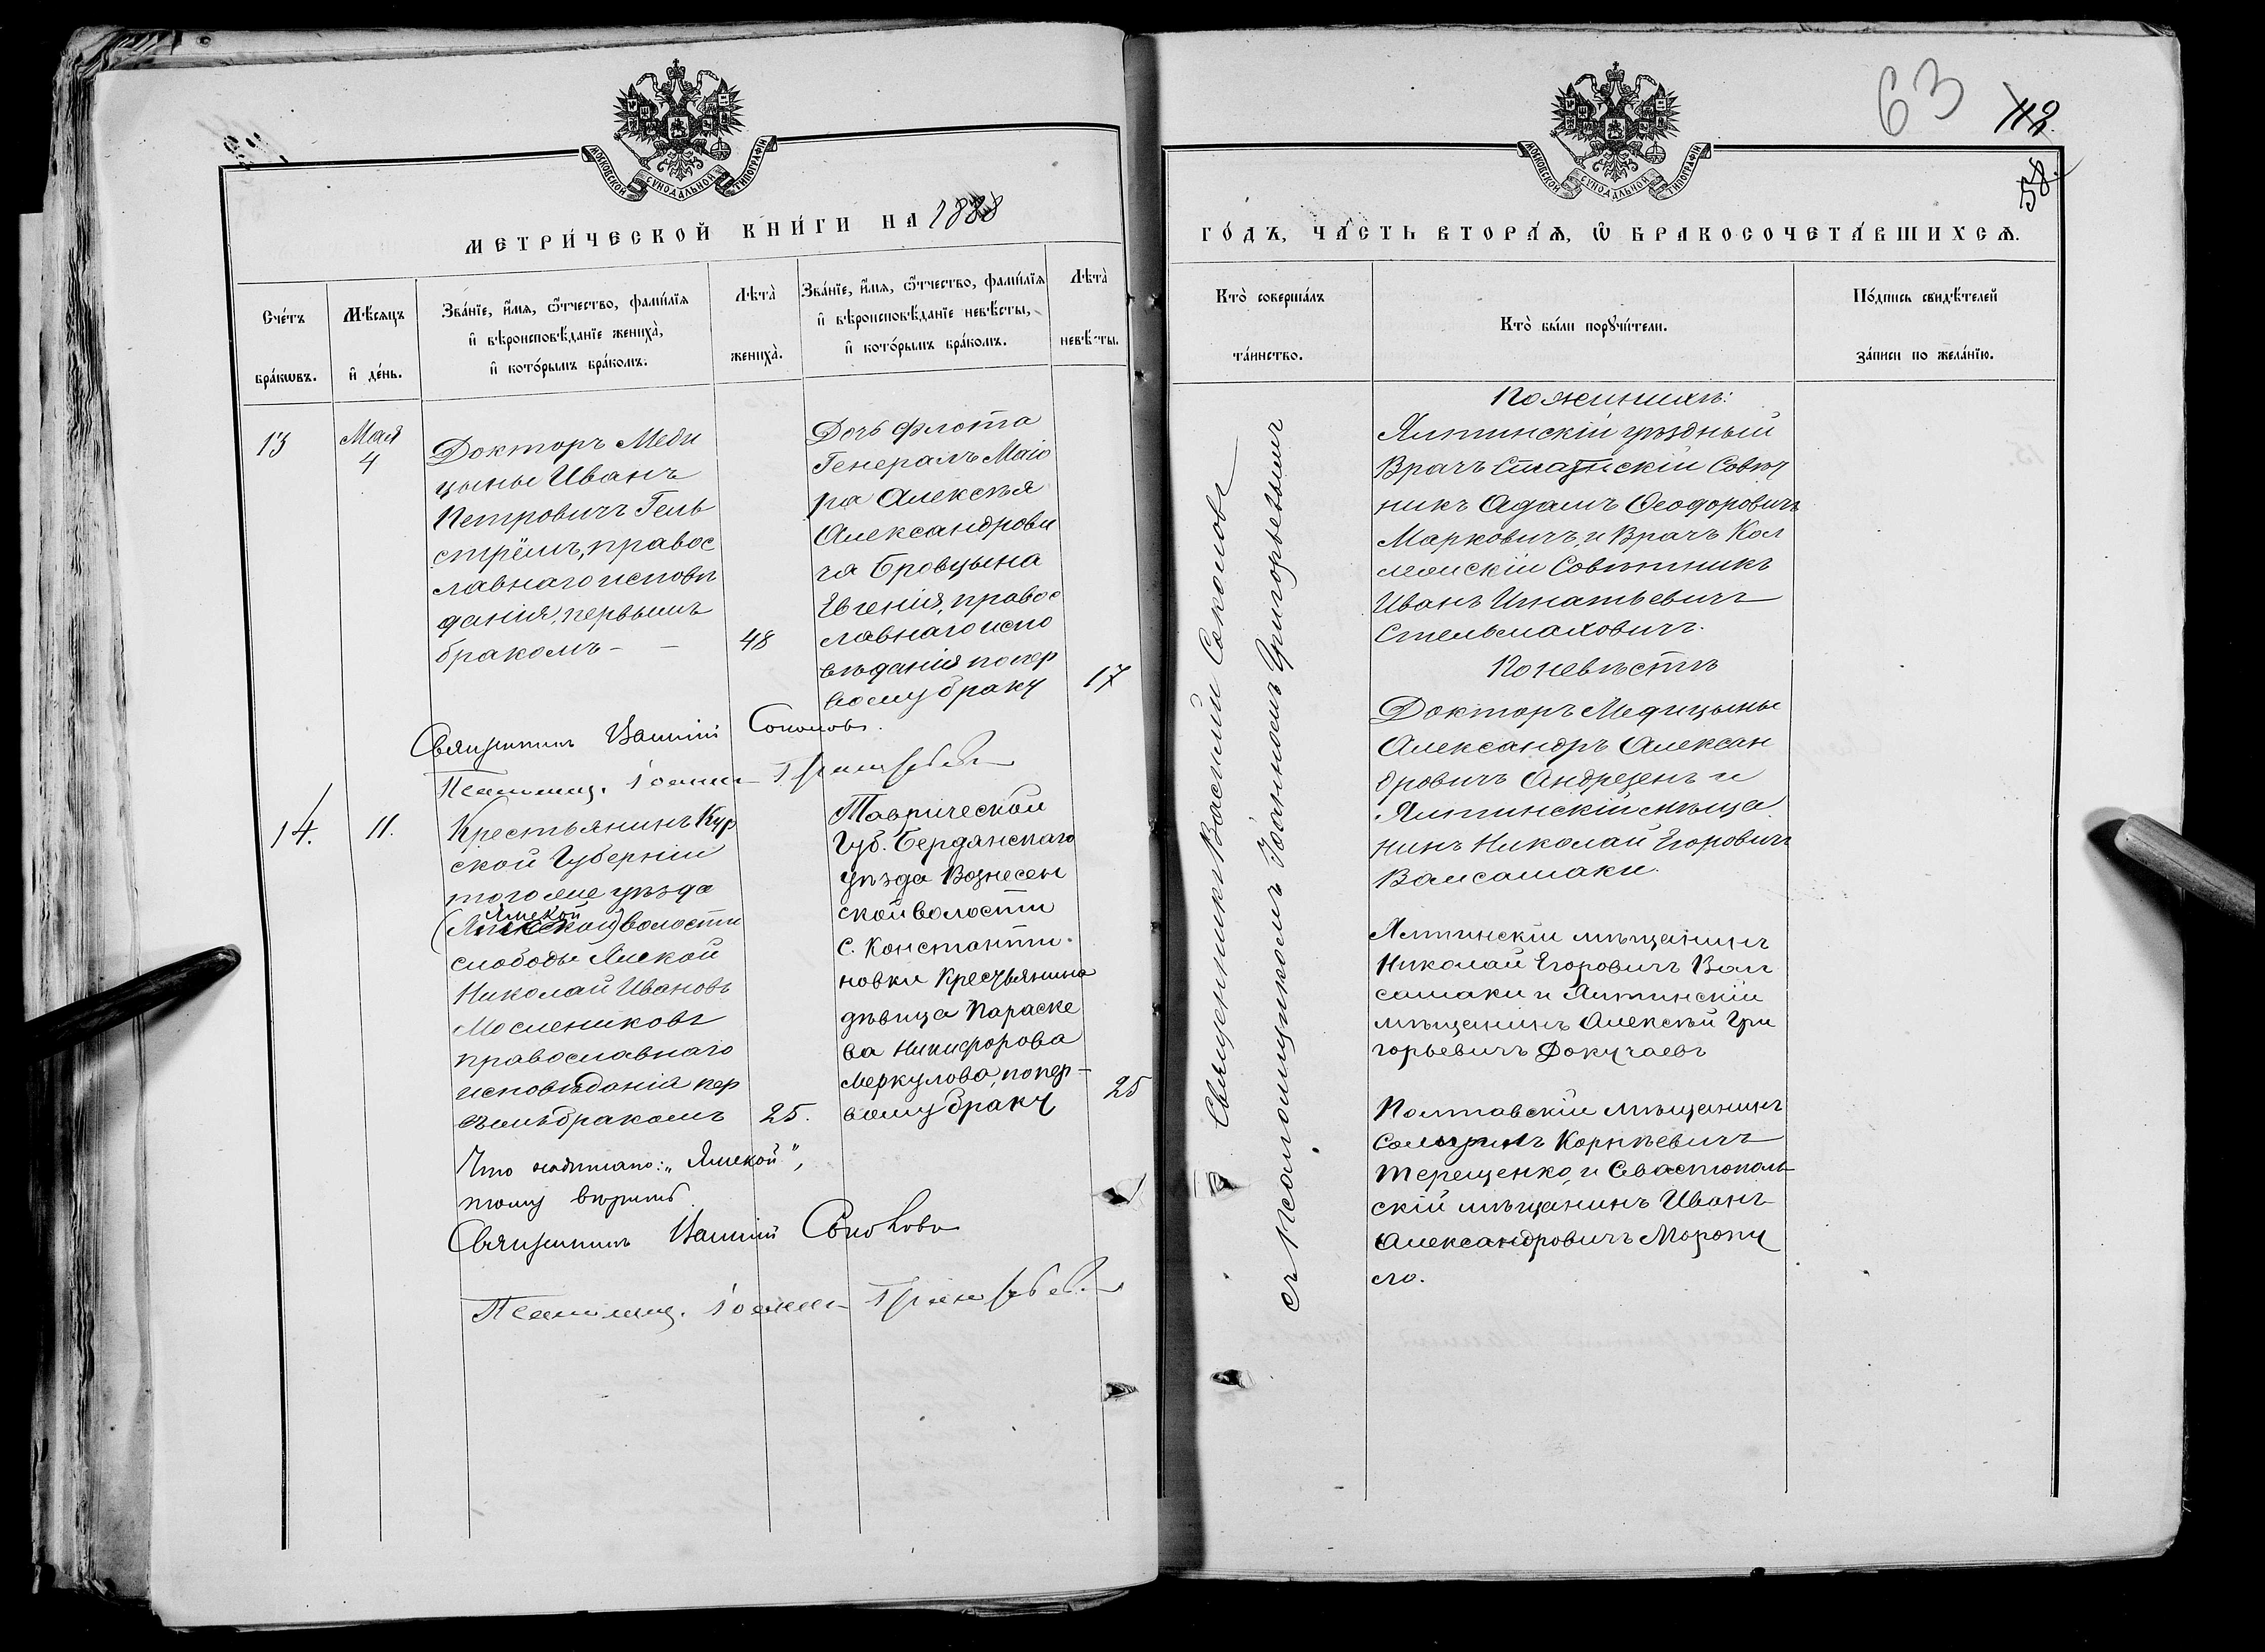 МОСКОВСКОЙ СѴНОДАЛЬНОЙ ТИПОГРАФІИ
МЕТРИ́ЧЕСКОЙ КНИ́ГИ НА 1888
Сче́тъ бра́кѡвъ.
Мѣ́сяцъ и҆ де́нь.
Зва́нїе, и҆́мѧ, ѻ҆́тчество, фами́лїѧ
и҆ вѣроисповѣ́данїе жениха̀,
и҆ кото́рымъ бра́комъ.
Лѣта̀ жениха̀.
Зва́нїе, и҆́мѧ, ѻ҆́тчество, фами́лїѧ
и҆ вѣроисповѣ́данїе невѣ́сты,
и҆ кото́рымъ бра́комъ.
Лѣта̀ невѣ́сты.
13
Мая
4
Докторъ Меди
цыны Иванъ
Петровичъ Гель
стрёмъ, правос
лавнаго исповѣ
данія, первымъ
бракомъ - -
48
Дочь флота
Генералъ Маіо
ра Алексѣя
Александрови
ча Бровцына
Евгенія, правос
лавнаго испо
вѣданія по пер
вому браку
17
Священникъ Василій Соколовъ.
Псаломщ. Іоаннъ Григорьевъ
14.
11.
Крестьянинъ Кур
ской Губерніи
того же уѣзда
Ямской
(Ямской) волости
слободы Ямской
Николай Ивановъ
Маслениковъ
православнаго
исповѣданія пер
вымъ бракомъ
25.
Таврической
Губ. Бердянскаго
уѣзда Вознесен
ской волости
с. Константи-
новки Крестьянина
дѣвица Параске
ва Никифорова
Меркулова, по пер-
вому браку
25
Что надписано: „Ямской“,
тому вѣрить.
Священникъ Василій Соколовъ
Псаломщ. Іоаннъ Григорьевъ
63
112.
58.
МОСКОВСКОЙ СѴНОДАЛЬНОЙ ТИПОГРАФІИ
ГО́ДЪ, ЧА́СТЬ ВТОРА́Ѧ, Ѡ҆ БРАКОСОЧЕТА́ВШИХСѦ.
Кто̀ соверша́лъ та́инство.
Кто̀ бы́ли порꙋчи́тели.
По́дпись свидѣ́телей за́писи по жела́нїю.
Священникъ Василій Соколовъ
съ Псаломщикомъ Іоанномъ Григорьевымъ
По женихѣ:
Ялтинскій уѣздный
Врачъ Статскій Совѣт
никъ Адамъ Ѳеодоровичъ
Марковичъ, и Врачъ Кол
лежскій Совѣтникъ
Иванъ Игнатьевичъ
Стельмаховичъ.
По невѣстѣ
Докторъ Медицыны
Александръ Алексан
дровичъ Андрезенъ и
Ялтинскій мѣща
нинъ Николай Егоровичъ
Валсамаки.
Ялтинскій мѣщанинъ
Николай Егоровичъ Вал
самаки и Ялтинскій
мѣщанинъ Алексѣй Гри
горьевичъ Докучаевъ
Полтавскій мѣщанинъ
Корнѣевичъ
Терещенко, и Севастополь
скій мѣщанинъ Иванъ
Александровичъ